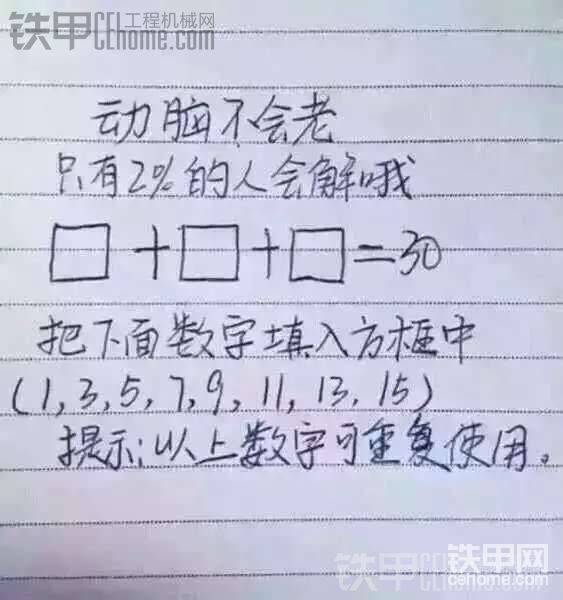 铁甲 工程机械网
CEhome.com
动脑不会老
只有2%的人会解哦
□+□+□=30
把下面数字填入方框中
(1,3,5,7,9,11,13,15)
提示:以上数字可重复使用。
铁甲 铁甲网
cehome.com